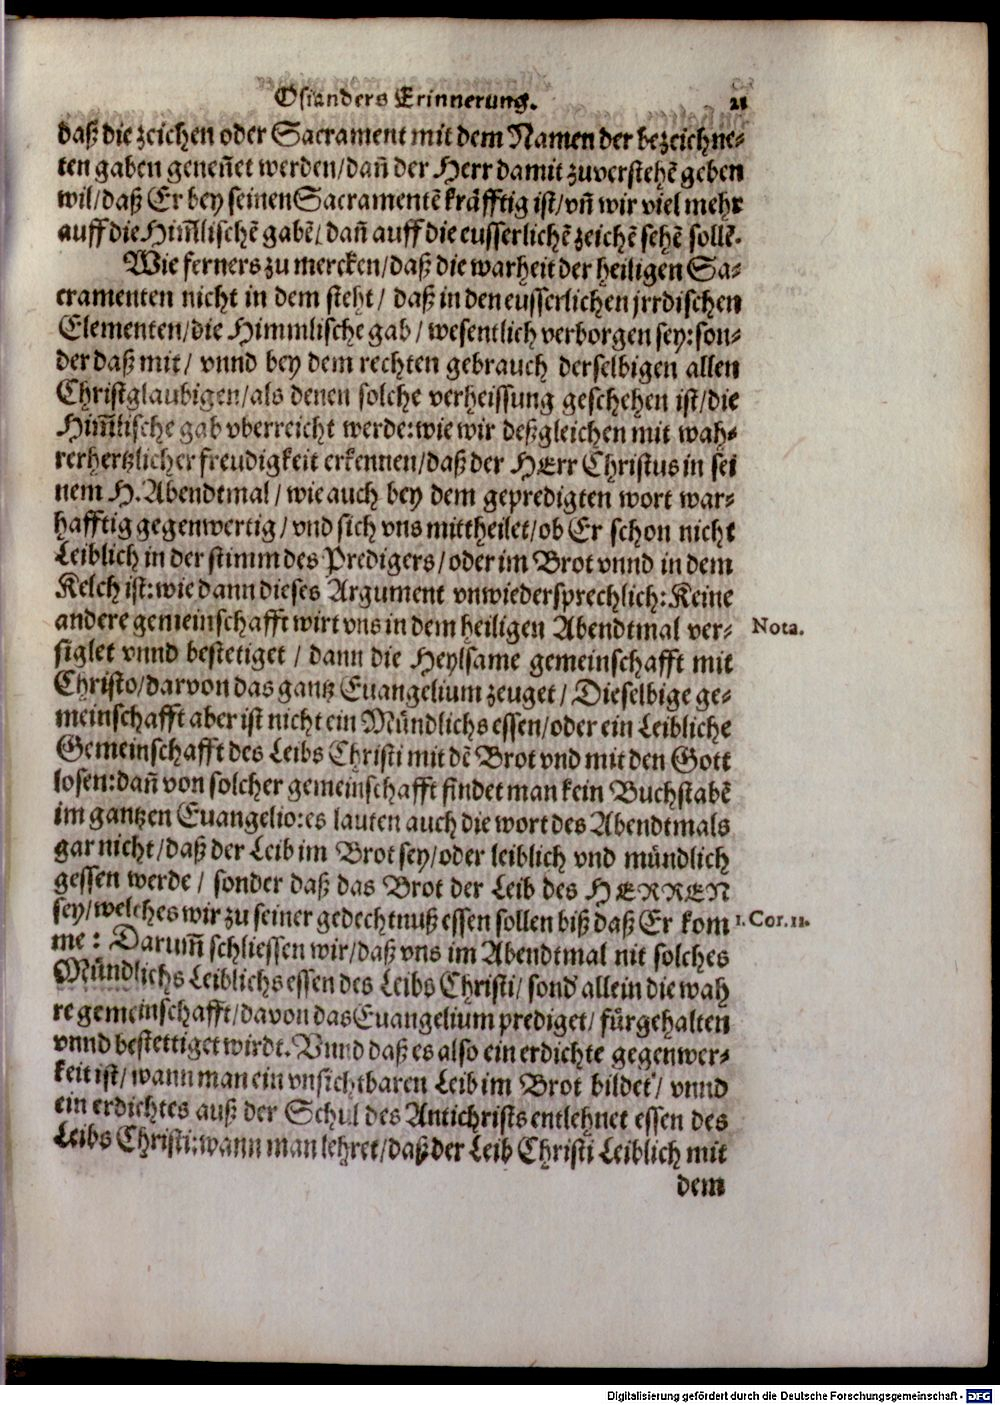 Osianders Erinnerung. 21
daß die zeichen oder Sacrament mit dem Namen der bezeichne-
ten gaben geneñet werden/dañ der Herr damit zuverstehẽ geben
wil/daß Er bey seinen Sacramentẽ kräfftig ist/vñ wir viel mehr
auff die Him̃lischẽ gabẽ/dañ auff die eusserlichẽ zeichẽ sehẽ sollẽ.
Wie ferners zu mercken/daß die warheit der heiligen Sa-
cramenten nicht in dem steht/ daß in den eusserlichen jrrdischen
Elementen/die Himmlische gab/ wesentlich verborgen sey:son-
der daß mit/ vnnd bey dem rechten gebrauch derselbigen allen
Christglaubigen/als denen solche verheissung geschehen ist/die
Him̃lische gab vberreicht werde:wie wir deßgleichen mit wah-
rer hertzlicher freudigkeit erkennen/daß der HErr Christus in sei
nem H. Abendtmal/ wie auch bey dem gepredigten wort war-
hafftig gegenwertig/ vnd sich vns mittheilet/ob Er schon nicht
Leiblich in der stimm des Predigers/ oder im Brot vnnd in dem
Kelch ist:wie dann dieses Argument vnwiedersprechlich:Keine
andere gemeinschafft wirt vns in dem heiligen Abendtmal ver- Nota.
siglet vnnd bestetiget/ dann die Heylsame gemeinschafft mit
Christo/darvon das gantz Euangelium zeuget/ Dieselbige ge-
meinschafft aber ist nicht ein Mündlichs essen/oder ein Leibliche
Gemeinschafft des Leibs Christi mit dẽ Brot vnd mit den Gott
losen:dañ von solcher gemeinschafft findet man kein Buchstabẽ
im gantzen Euangelio:es lauten auch die wort des Abendtmals
gar nicht/daß der Leib im Brot sey/oder leiblich vnd mündlich
gessen werde/ sonder daß das Brot der Leib des HERREN
sey/welches wir zu seiner gedechtnuß essen sollen biß daß Er kom 1. Cor. 11.
me: Darum̃ schliessen wir/daß vns im Abendtmal nit solches
Mündlichs Leiblichs essen des Leibs Christi/ sond' allein die wah
re gemeinschafft/davon das Euangelium prediget/ fürgehalten
vnnd bestettiget wirdt. Vnnd daß es also ein erdichte gegenwer-
keit ist/ wann man ein vnsichtbaren Leib im Brot bildet/ vnnd
ein erdichtes auß der Schul des Antichrists entlehnet essen des
Leibs Christi:wann man lehret/daß der Leib Christi Leiblich mit
dem
Digitalisierung gefördert durch die Deutsche Forschungsgemeinschaft - DFG